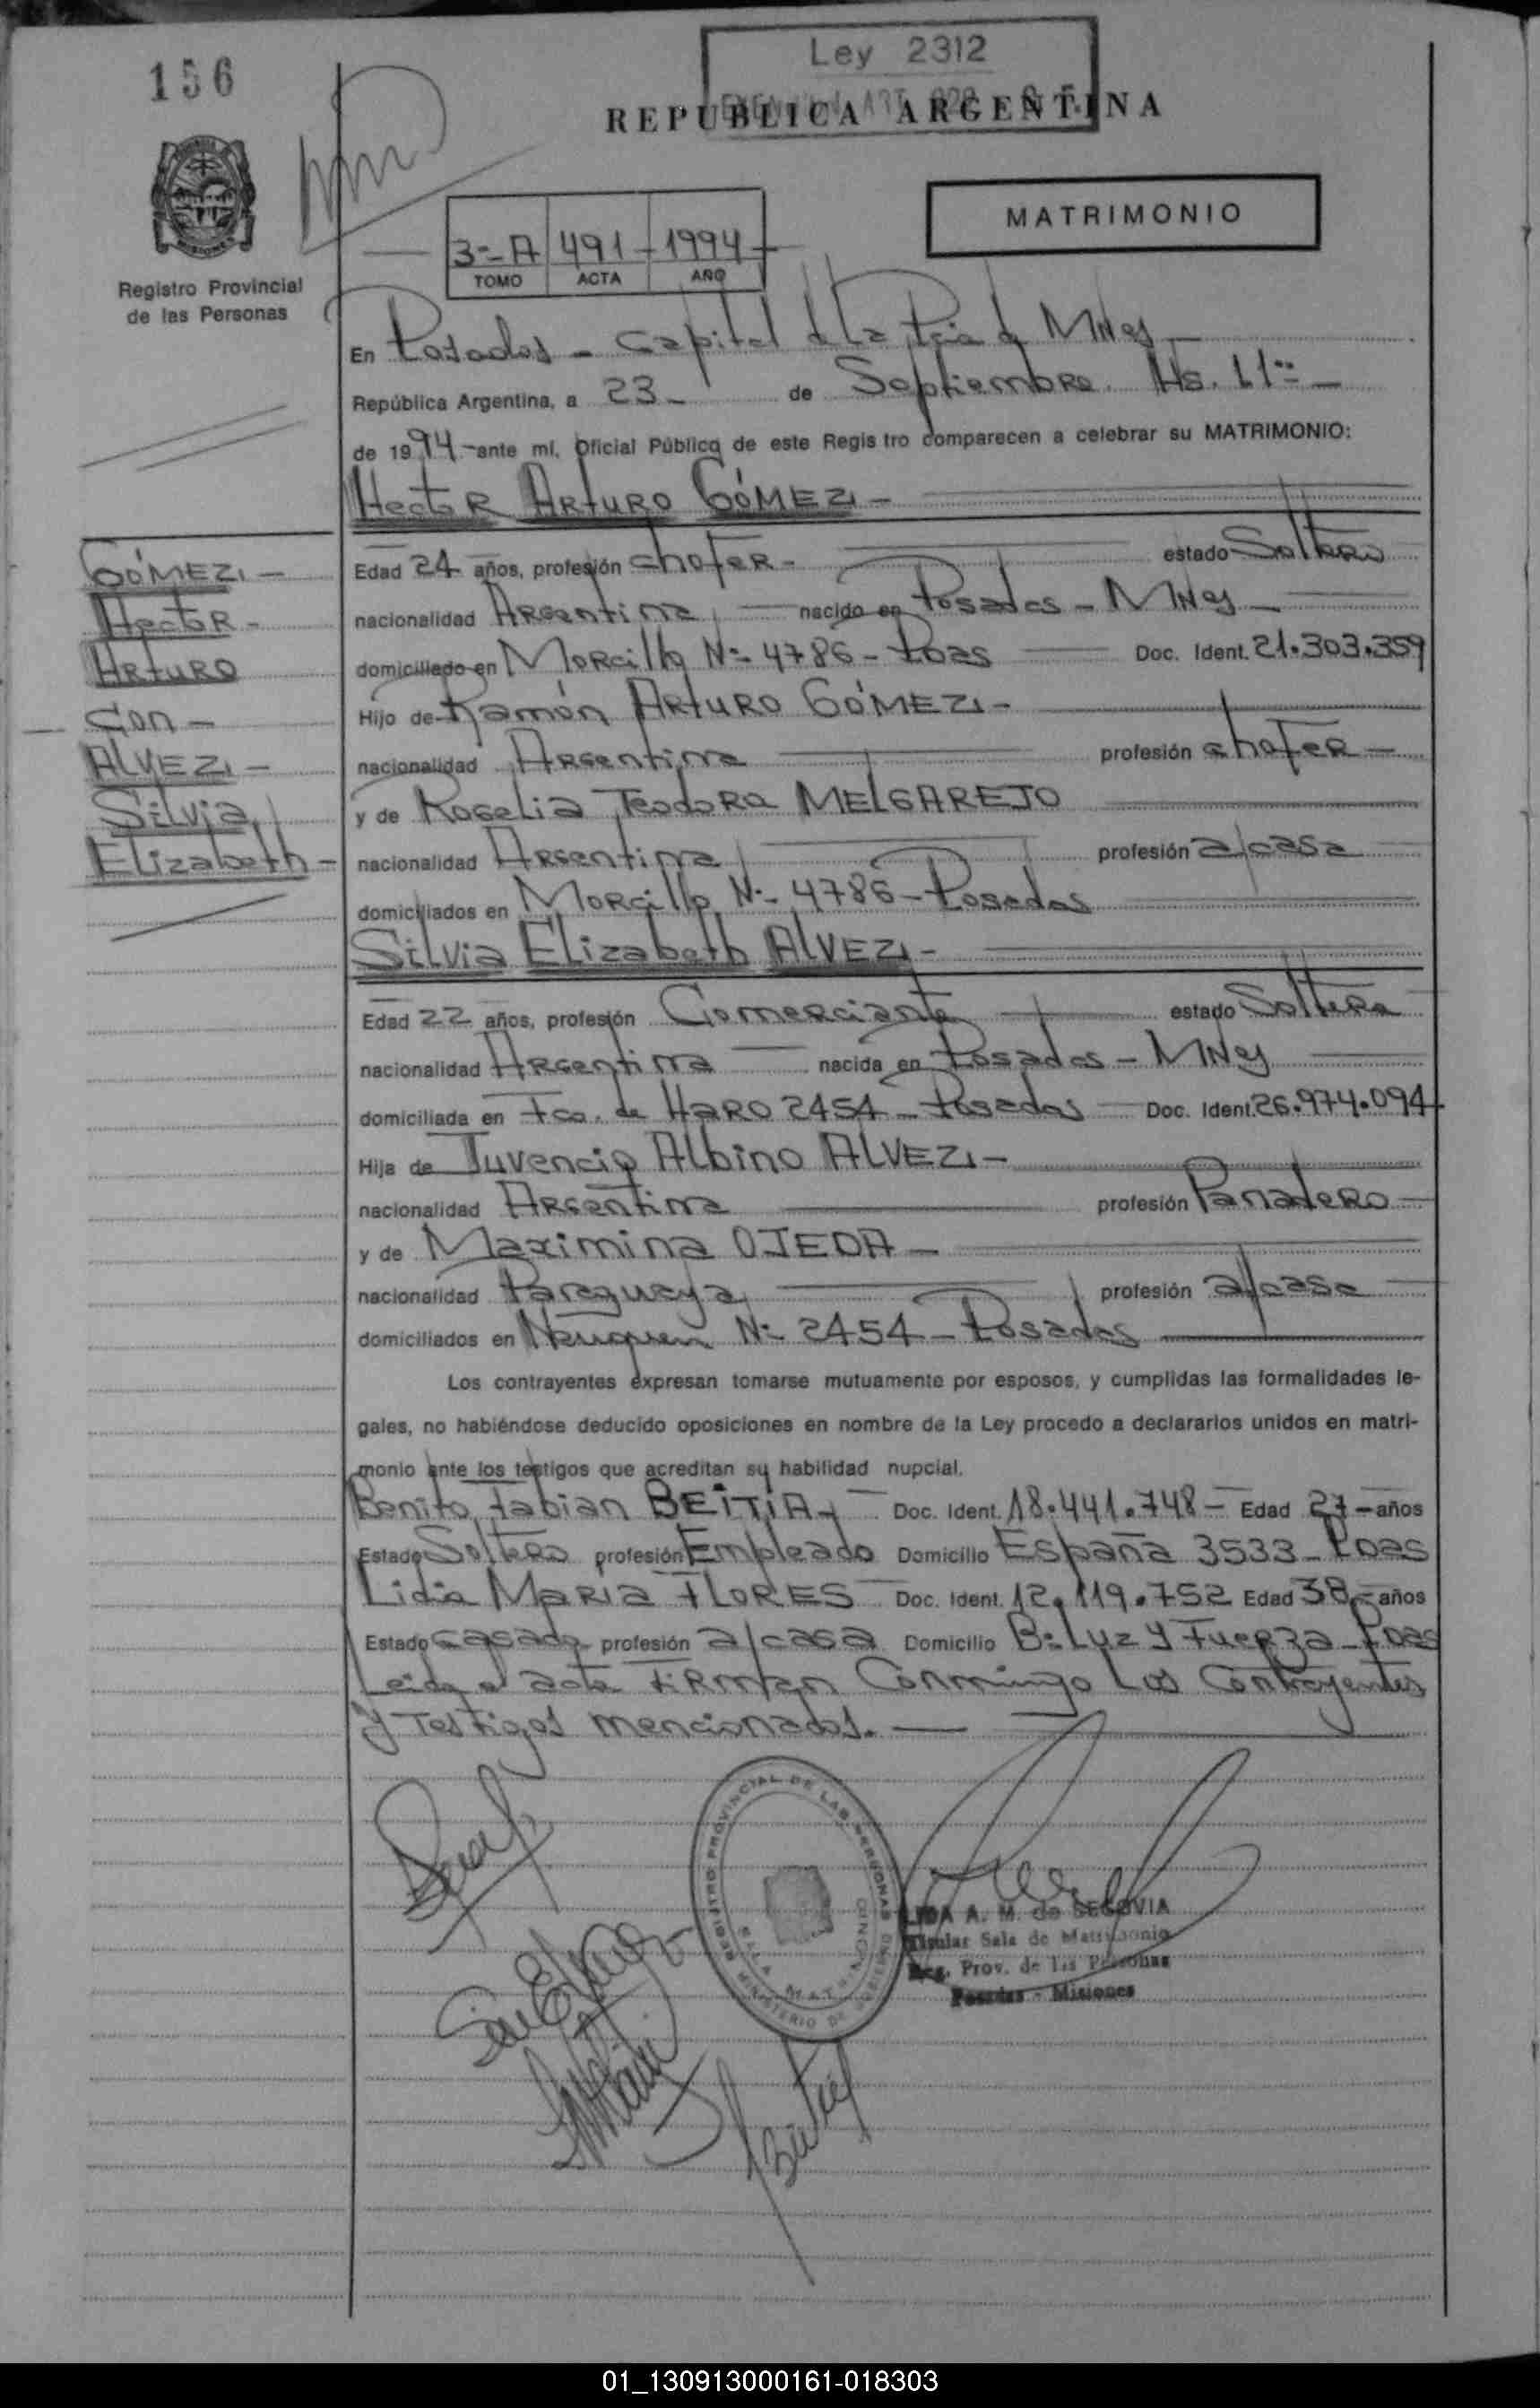 156
Ley 2312
REPUBLICA ARGENTINA
MATRIMONIO
3=-A 491-1994-
TOMO ACTA AÑO
Registro Provincial
de las Personas
En Posadas - Capital d la Pcia d Mnes
República Argentina, a 23- de Septiembre. Hs. 11=-
de 1994-ante mí, Oficial Público de este Registro comparecen a celebrar su MATRIMONIO:
Hector Arturo GÓMEZ-
GÓMEZ-
Hector-
Arturo
Con-
ALVEZ-
Silvia
Elizabeth-
Edad 24 años, profesión chofer- estado Soltero
nacionalidad Argentina nacido en Posadas - Mnes
domiciliado en Morcillo N=4786-Pdas Doc. Ident. 21.303.359
Hijo de Ramón Arturo GÓMEZ-
nacionalidad Argentina profesión chofer-
y de Rogelia Teodora MELGAREJO
nacionalidad Argentina profesión a/casa
domiciliados en Morcillo N=- 4786-Posadas
Silvia Elizabeth ALVEZ-
Edad 22 años, profesión Comerciante estado Soltera
nacionalidad Argentina nacida en Posadas - Mnes
domiciliada en Fco. de Haro 2454-Posadas Doc. Ident. 26.974.094
Hija de Juvencio Albino ALVEZ-
nacionalidad Argentina profesión Panadero
y de Maximina OJEDA-
nacionalidad Paraguaya profesión a/casa
domiciliados en Neuquen N=- 2454-Posadas
Los contrayentes expresan tomarse mutuamente por esposos, y cumplidas las formalidades le-
gales, no habiéndose deducido oposiciones en nombre de la Ley procedo a declararlos unidos en matri-
monio ante los testigos que acreditan su habilidad nupcial.
Benito Fabian BEITIA- Doc. Ident. 18.441.748- Edad 27-años
Estado Soltero profesión Empleado Domicilio España 3533-Pdas
Lidia Maria FLORES Doc. Ident. 12.119.752 Edad 38-años
Estado casada profesión a/casa Domicilio B= Luz y Fuerza-Pdas
Leida el acta firman Conmingo Los Contrayentes
y Testigos mencionados.
REGISTRO PROVINCIAL DE LAS PERSONAS
MINISTERIO DE GOBIERNO
LIDA A. M. de SEGOVIA
Titular Sala de Matrimonio
Reg. Prov. de las Personas
Posadas - Misiones
01_130913000161-018303